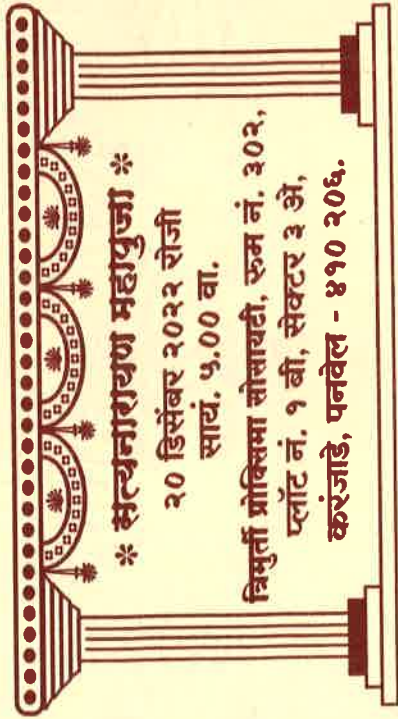 * सत्यनारायण महापुजा *
२० डिसेंबर २०२२ रोजी
सायं. ५.०० वा.
त्रिमुर्ती प्रोक्सिमा सोसायटी, रुम नं. ३०२,
प्लॉट नं. १ बी, सेक्टर ३ अे,
करंजाडे, पनवेल - ४१० २०६.